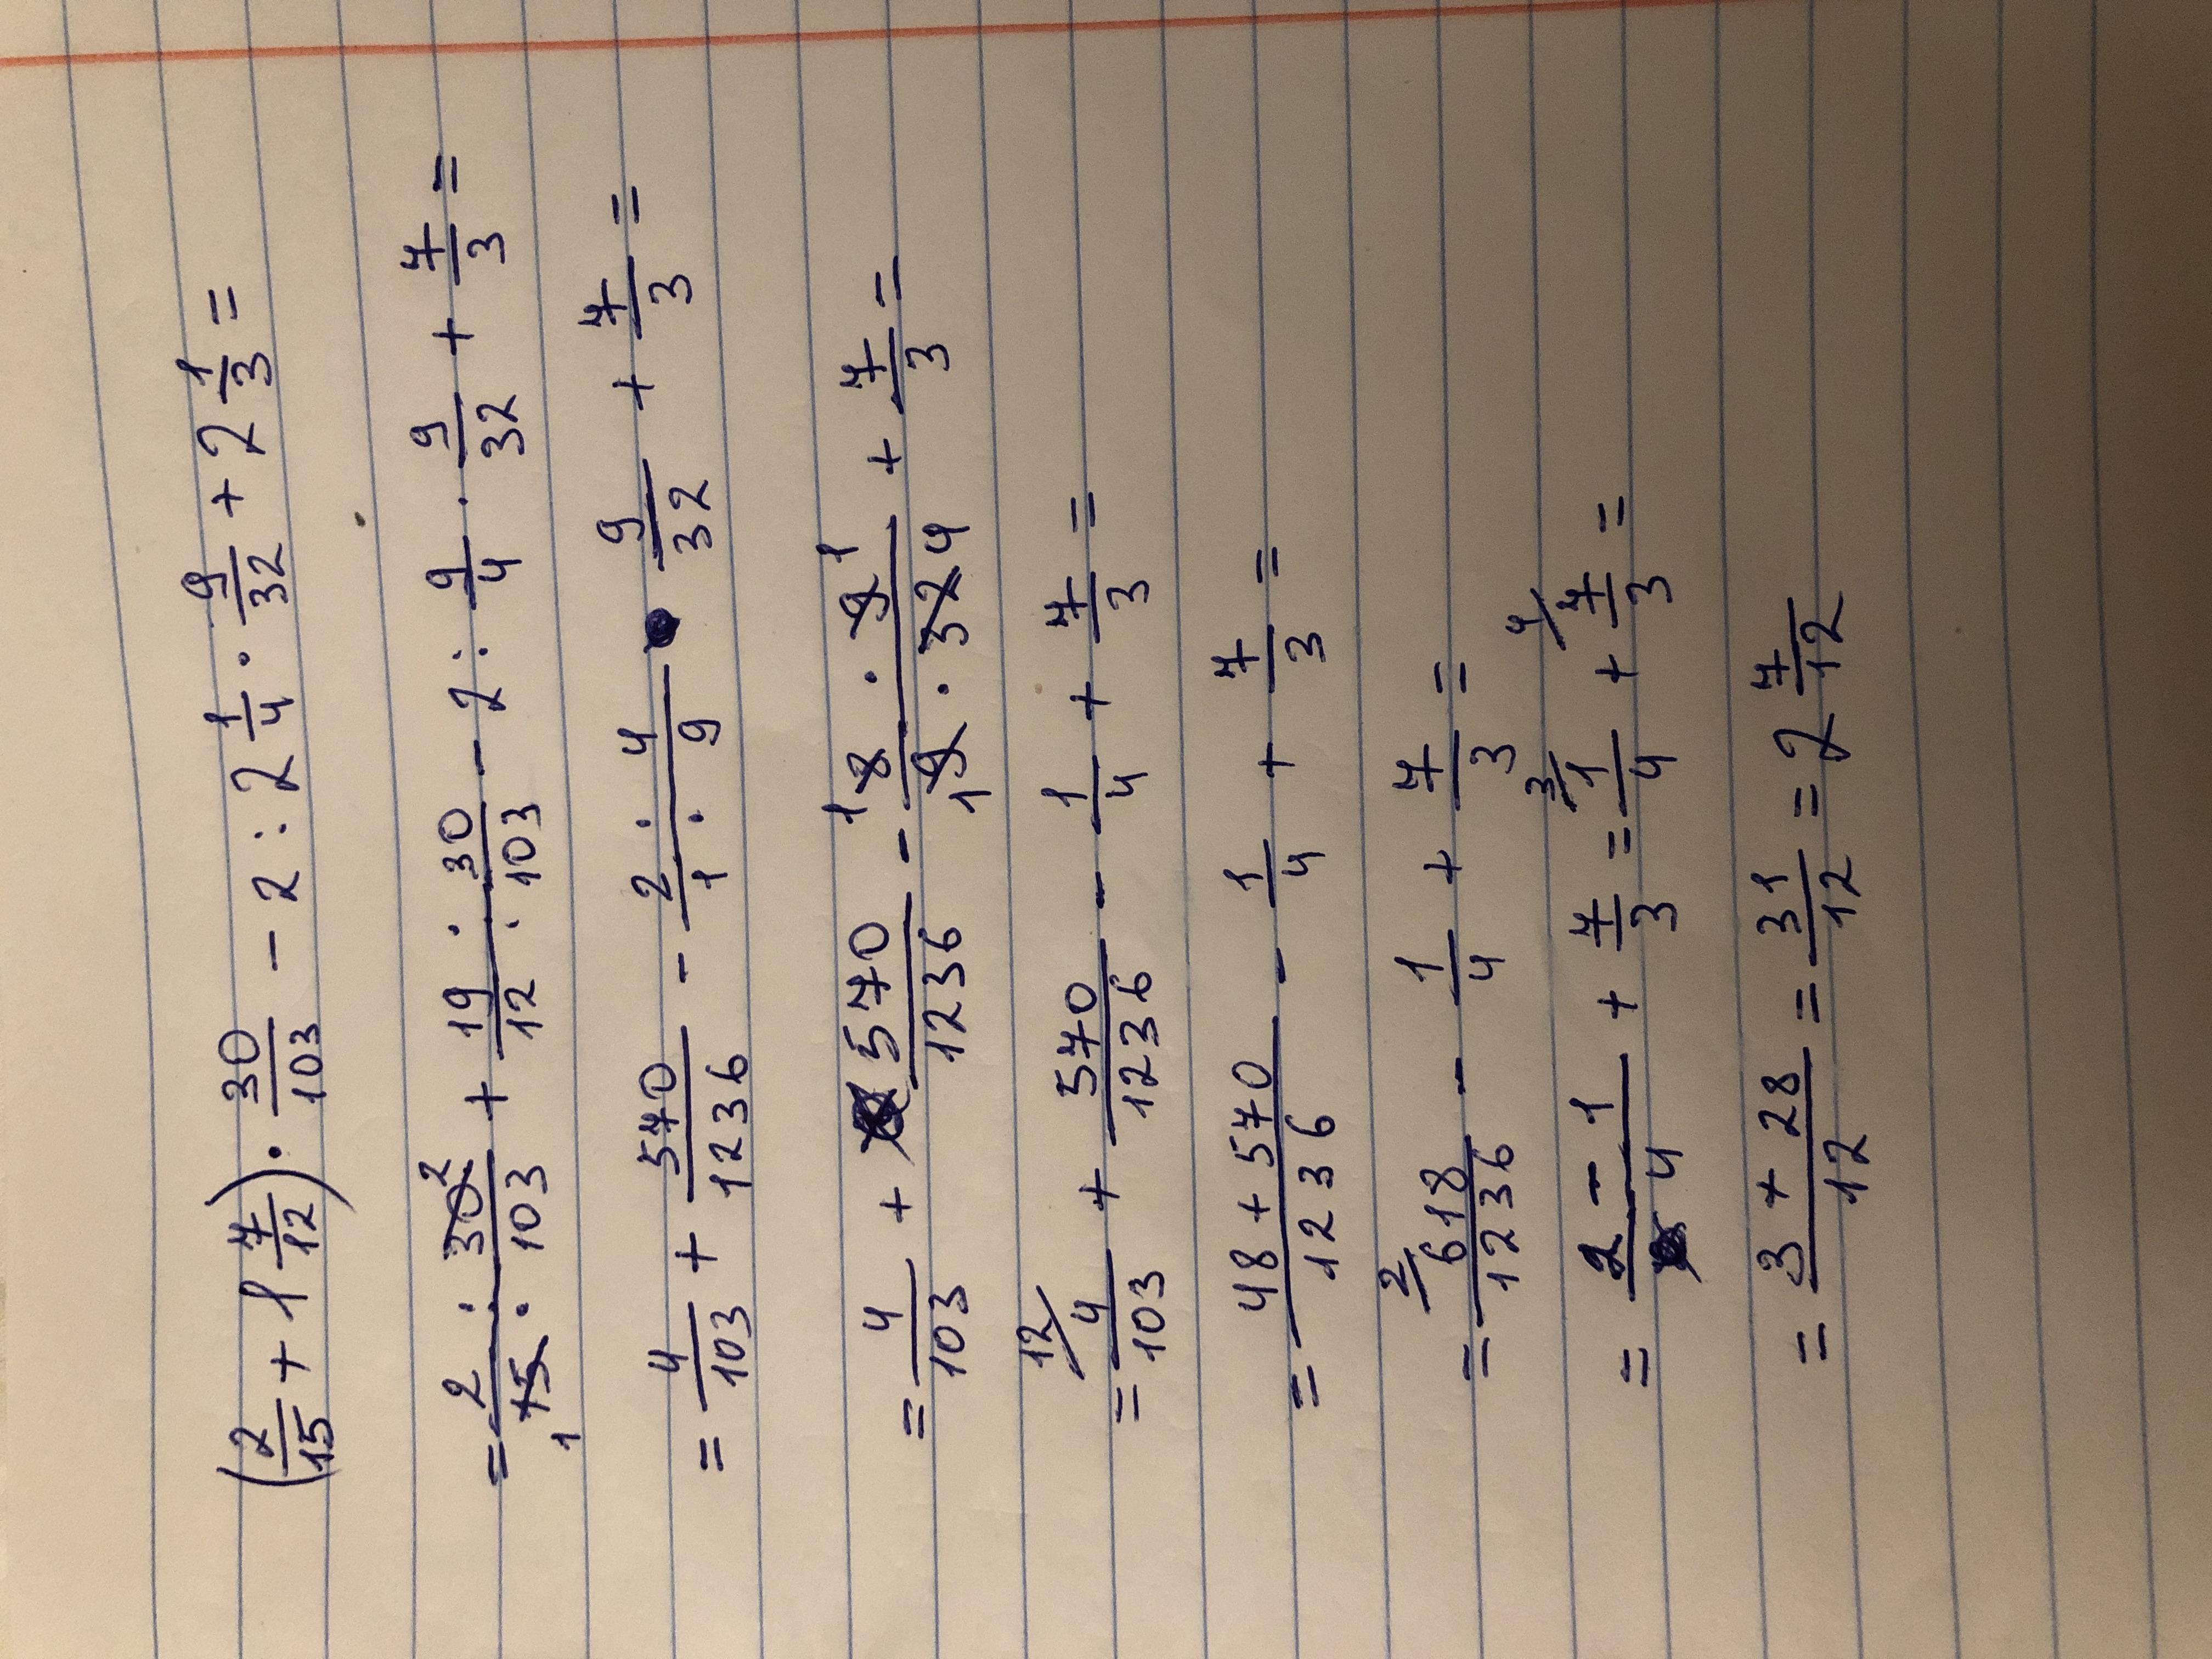 (2/15 + 1 7/12) · 30/103 - 2 : 2 1/4 · 9/32 + 2 1/3 =
= 2 · 30 2/1 15 · 103 + 19 · 30/12 · 103 - 2 : 9/4 · 9/32 + 7/3 =
= 4/103 + 570/1236 - 2 · 4/1 · 9 · 9/32 + 7/3 =
= 4/103 + 570/1236 - 1 8 · 9 1/1 9 · 32 4 + 7/3 =
= 12/ 4/103 + 570/1236 - 1/4 + 7/3 =
= 48 + 570/1236 - 1/4 + 7/3 =
= 2/ 618/1236 - 1/4 + 7/3 =
= 2 - 1/4 + 7/3 = 3/ 1/4 + 4/ 7/3 =
= 3 + 28/12 = 31/12 = 2 7/12